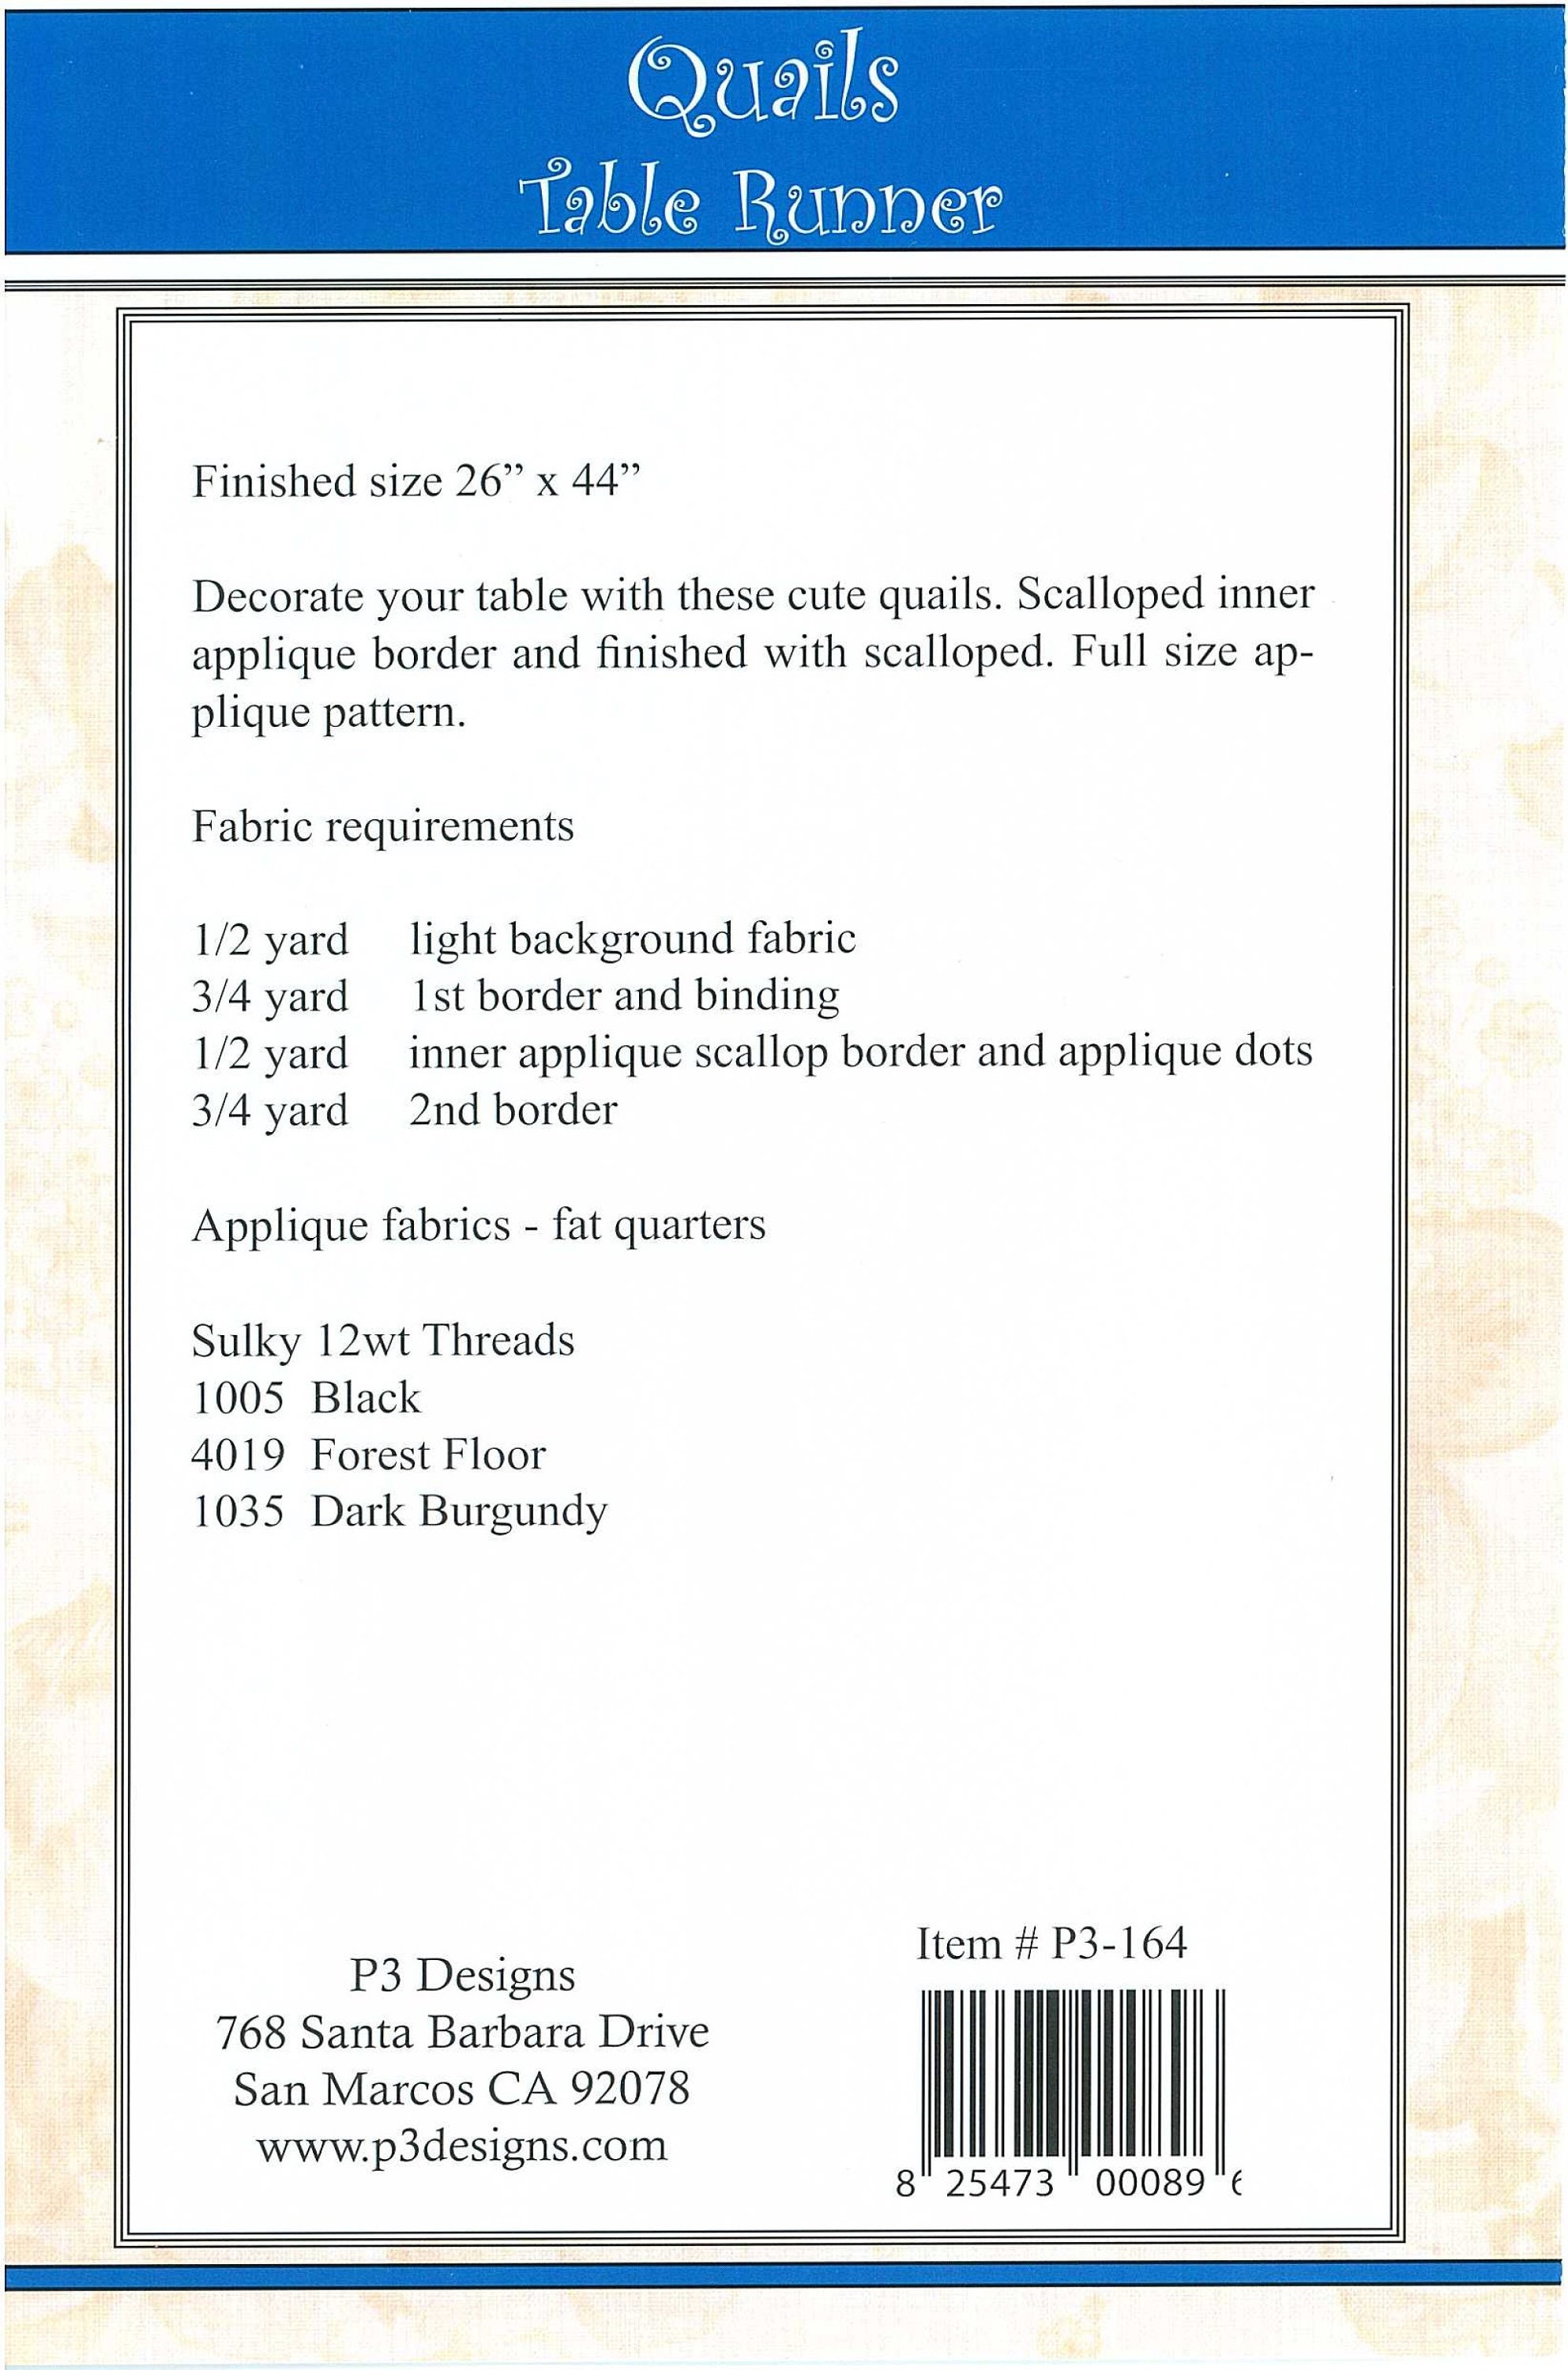 Quails
Table Runner
Finished size 26” x 44”
Decorate your table with these cute quails. Scalloped inner
applique border and finished with scalloped. Full size ap-
plique pattern.
Fabric requirements
1/2 yard light background fabric
3/4 yard 1st border and binding
1/2 yard inner applique scallop border and applique dots
3/4 yard 2nd border
Applique fabrics - fat quarters
Sulky 12wt Threads
1005 Black
4019 Forest Floor
1035 Dark Burgundy
P3 Designs
768 Santa Barbara Drive
San Marcos CA 92078
www.p3designs.com
Item # P3-164
8 25473 00089 6